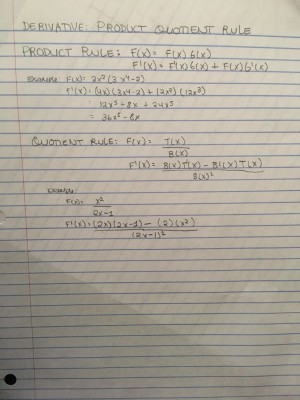 DERIVATIVE: PRODUCT QUOTIENT RULE
PRODUCT RULE: F(x) = F(x) G(x)
F'(x) = F'(x) G(x) + F(x) G'(x)
Example: F(x) = 2x² (3x⁴-2)
F'(x) = (4x)(3x⁴-2) + (2x²)(12x³)
= 12x⁵ - 8x + 24x⁵
= 36x⁵ - 8x
QUOTIENT RULE: F(x) = T(x)
B(x)
F'(x) = B(x)T'(x) - B'(x) T(x)
B(x)²
Example:
F(x) = x²
2x-1
F'(x) = (2x)(2x-1) - (2)(x²)
(2x-1)²